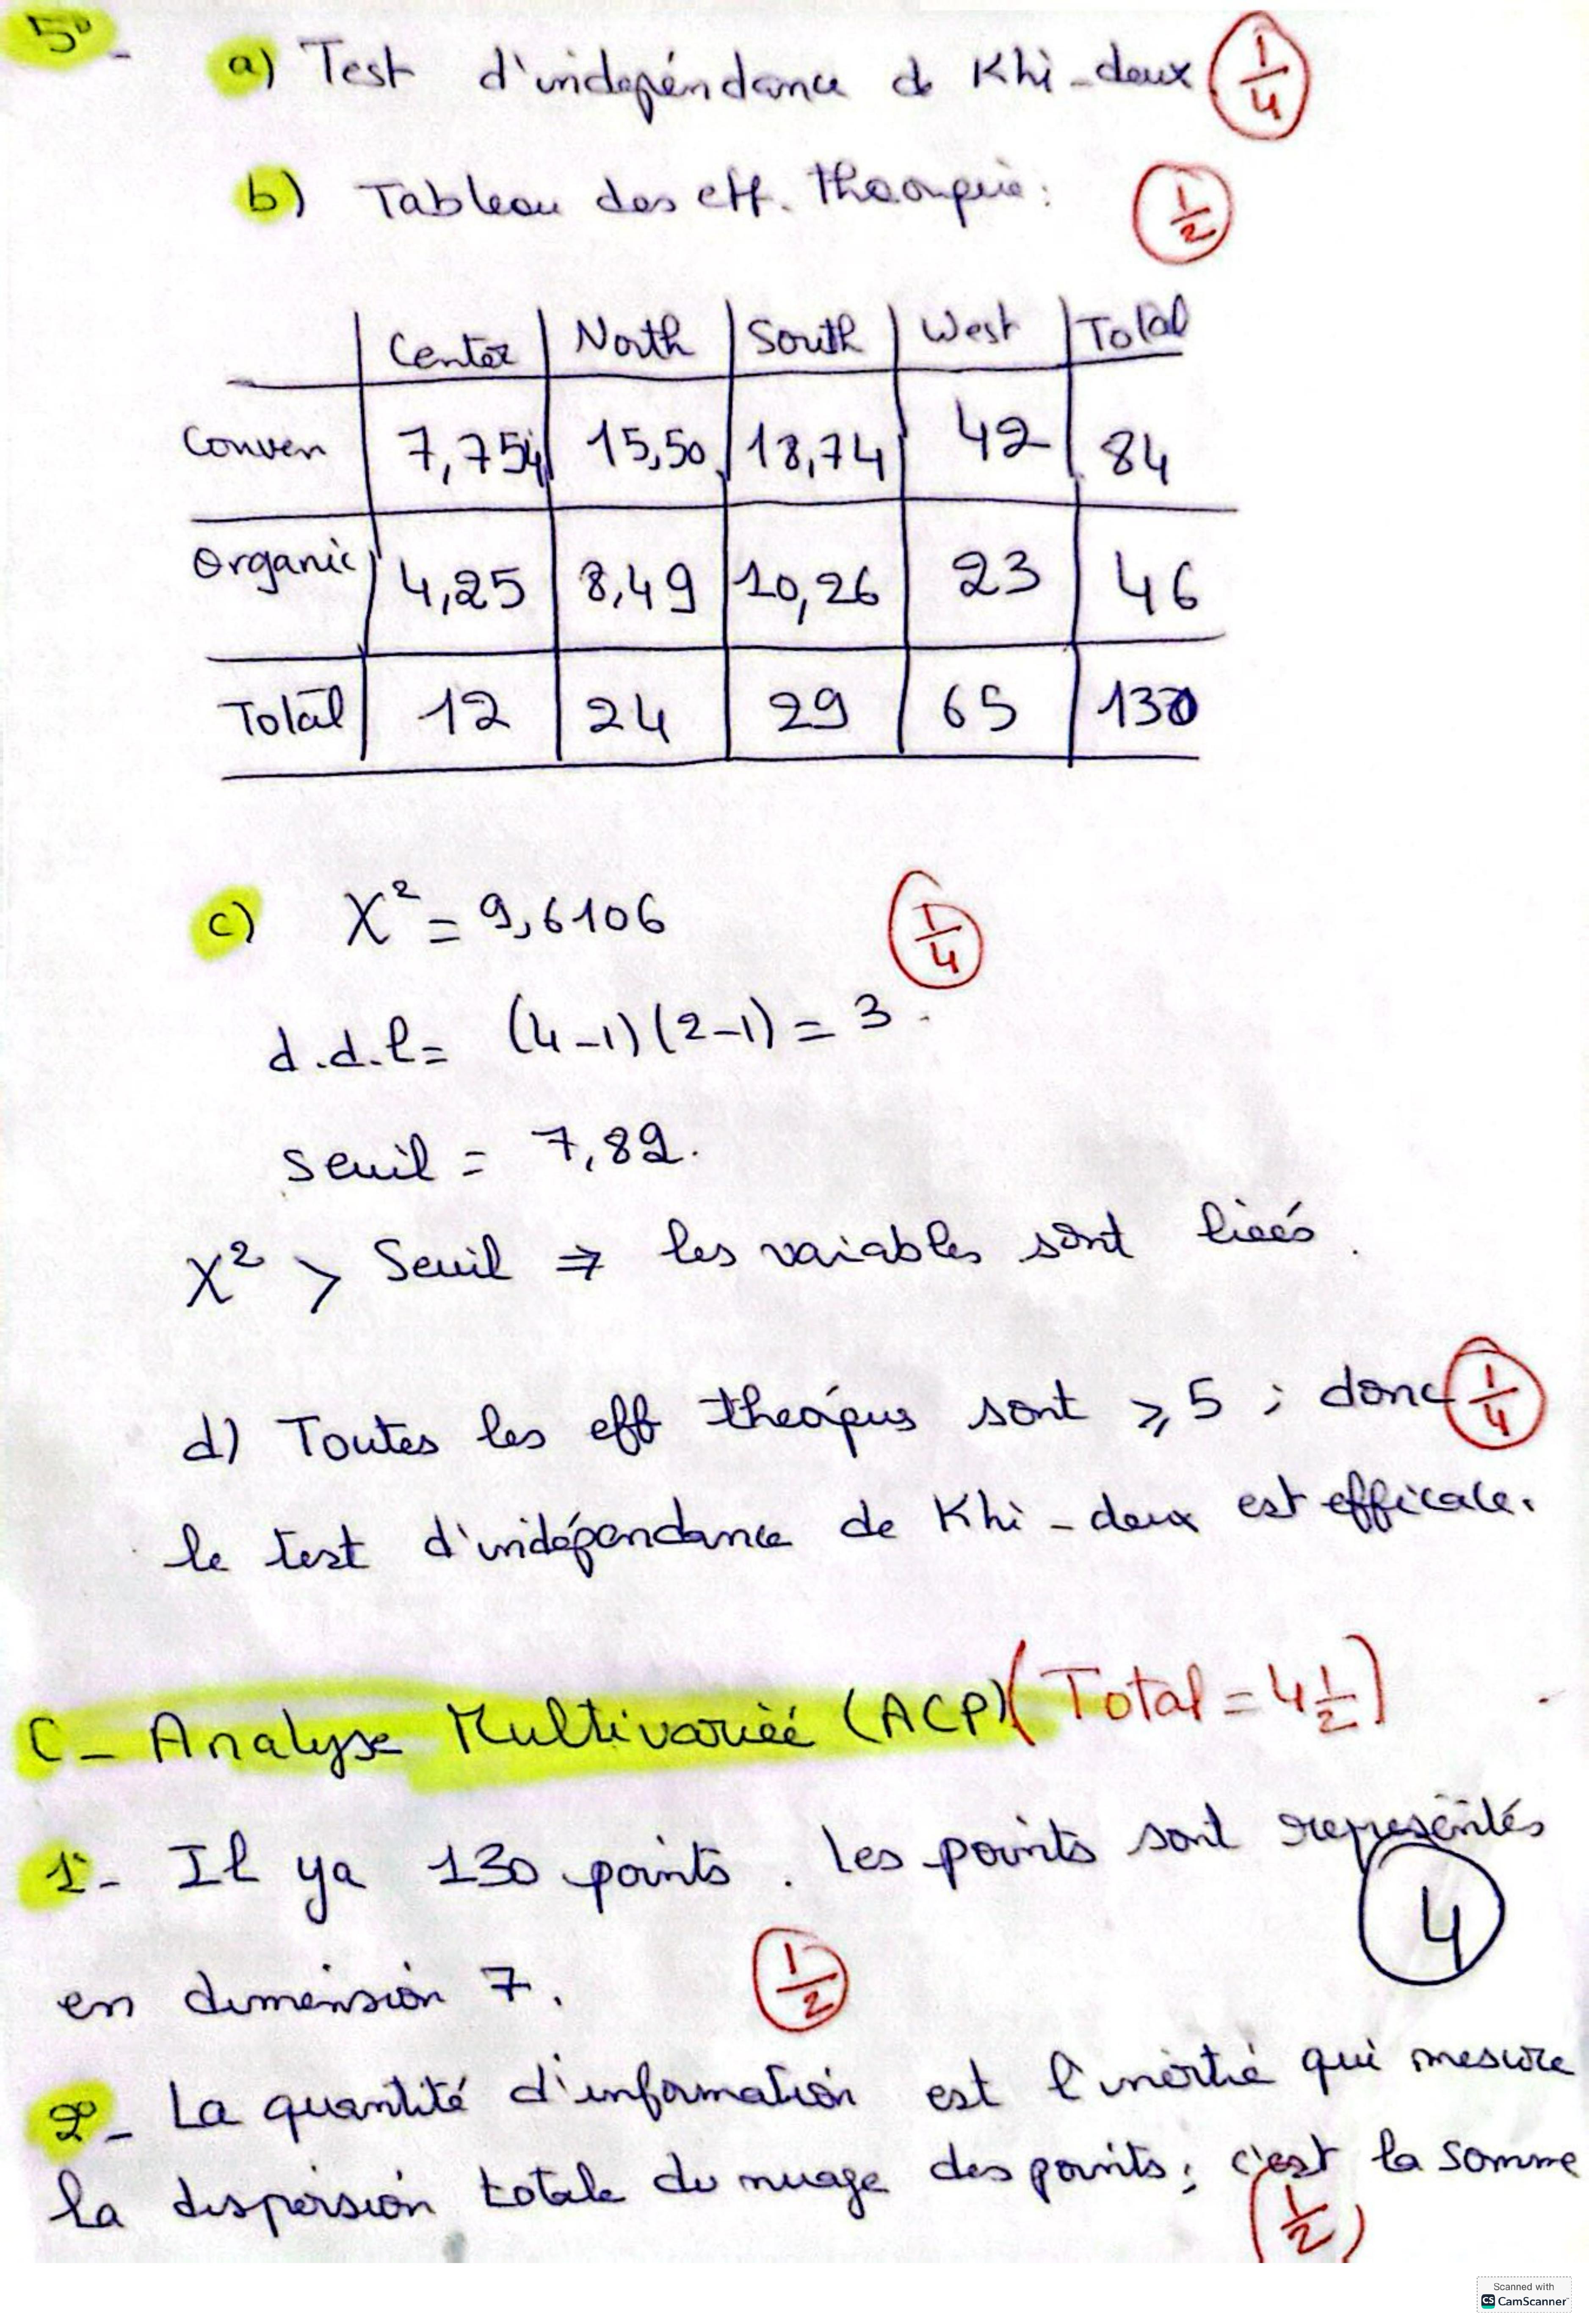 5° -
a) Test d'indépendance de Khi-deux 1/4
b) Tableau des eff. théorique : 1/2
Center North South West Total
Conven 7,754 15,50 18,74 42 84
Organic 4,25 8,49 10,26 23 46
Total 12 24 29 65 130
c) χ² = 9,6106 1/4
d.d.l = (4-1)(2-1) = 3.
seuil = 7,82.
χ² > Seuil ⇒ les variables sont liées.
d) Toutes les eff théoriques sont ⩾ 5 ; donc 1/4
le test d'indépendance de Khi-deux est efficace.
C- Analyse Multivariée (ACP) (Total = 4 1/2)
1- Il ya 130 points. les points sont représentés
4
en dimension 7. 1/2
2°- La quantité d'information est l'inertie qui mesure
la dispersion totale du nuage des points ; c'est la somme
1/2
Scanned with
CS CamScanner